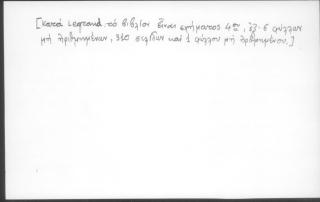 [Κατά Legrand τό βιβλίον εἶναι σχήματος 4ου, ἐξ 6 φύλλων
μή ἠριθμημένων, 310 σελίδων καί 1 φύλλου μή ἠριθμημένου.]